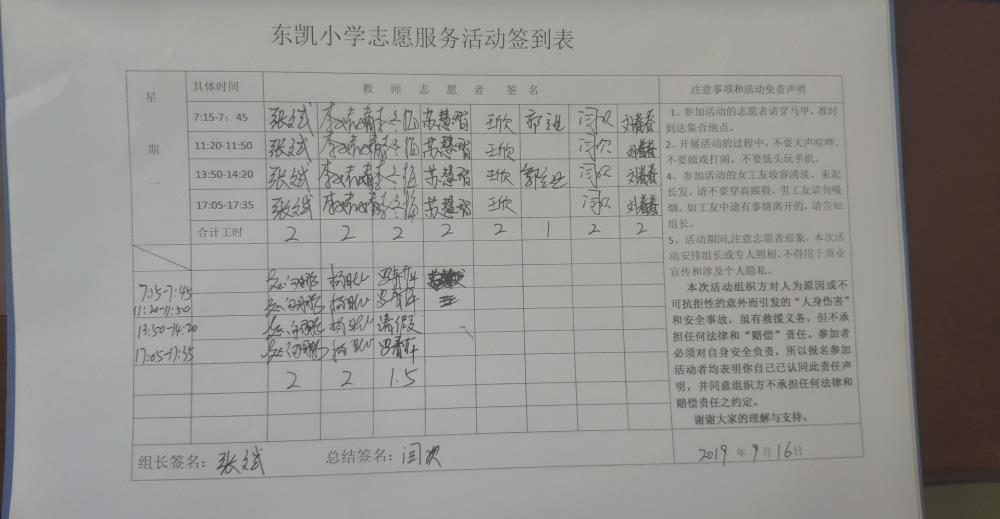 东凯小学志愿服务活动签到表
星期一
具体时间 教师志愿者签名 注意事项和活动免责声明
7:15-7：45 张文斌 苏慧智 王欣 闫欢
11:20-11:50 张文斌 苏慧智 王欣 闫欢
13:50-14:20 张文斌 苏慧智 王欣 闫欢
17:05-17:35 张文斌 苏慧智 王欣 闫欢
合计工时 2 2 2 2 2 1 2 2
7:15-7:45
11:20-11:50
13:50-14:20 请假
17:05-17:35
2 2 1.5
1、参加活动的志愿者请穿马甲，准时
到达集合地点。
2、开展活动的过程中，不要大声喧哗，
不要嬉戏打闹，不要低头玩手机。
4、参加活动的女工友妆容清淡，束起
长发，请不要穿高跟鞋，男工友请勿吸
烟。如工友中途有事情离开的，请告知
组长。
5、活动期间,注意志愿者形象，本次活
动安排组长或专人照相，不得用于商业
宣传和涉及个人隐私。
本次活动组织方对人为原因或不
可抗拒性的意外而引发的“人身伤害”
和安全事故，虽有救援义务，但不承
担任何法律和“赔偿”责任。参加者
必须对自身安全负责，所以报名参加
活动者均表明你自己已认同此责任声
明，并同意组织方不承担任何法律和
赔偿责任之约定。
谢谢大家的理解与支持。
组长签名：张文斌 总结签名：闫欢 2019年9月16日